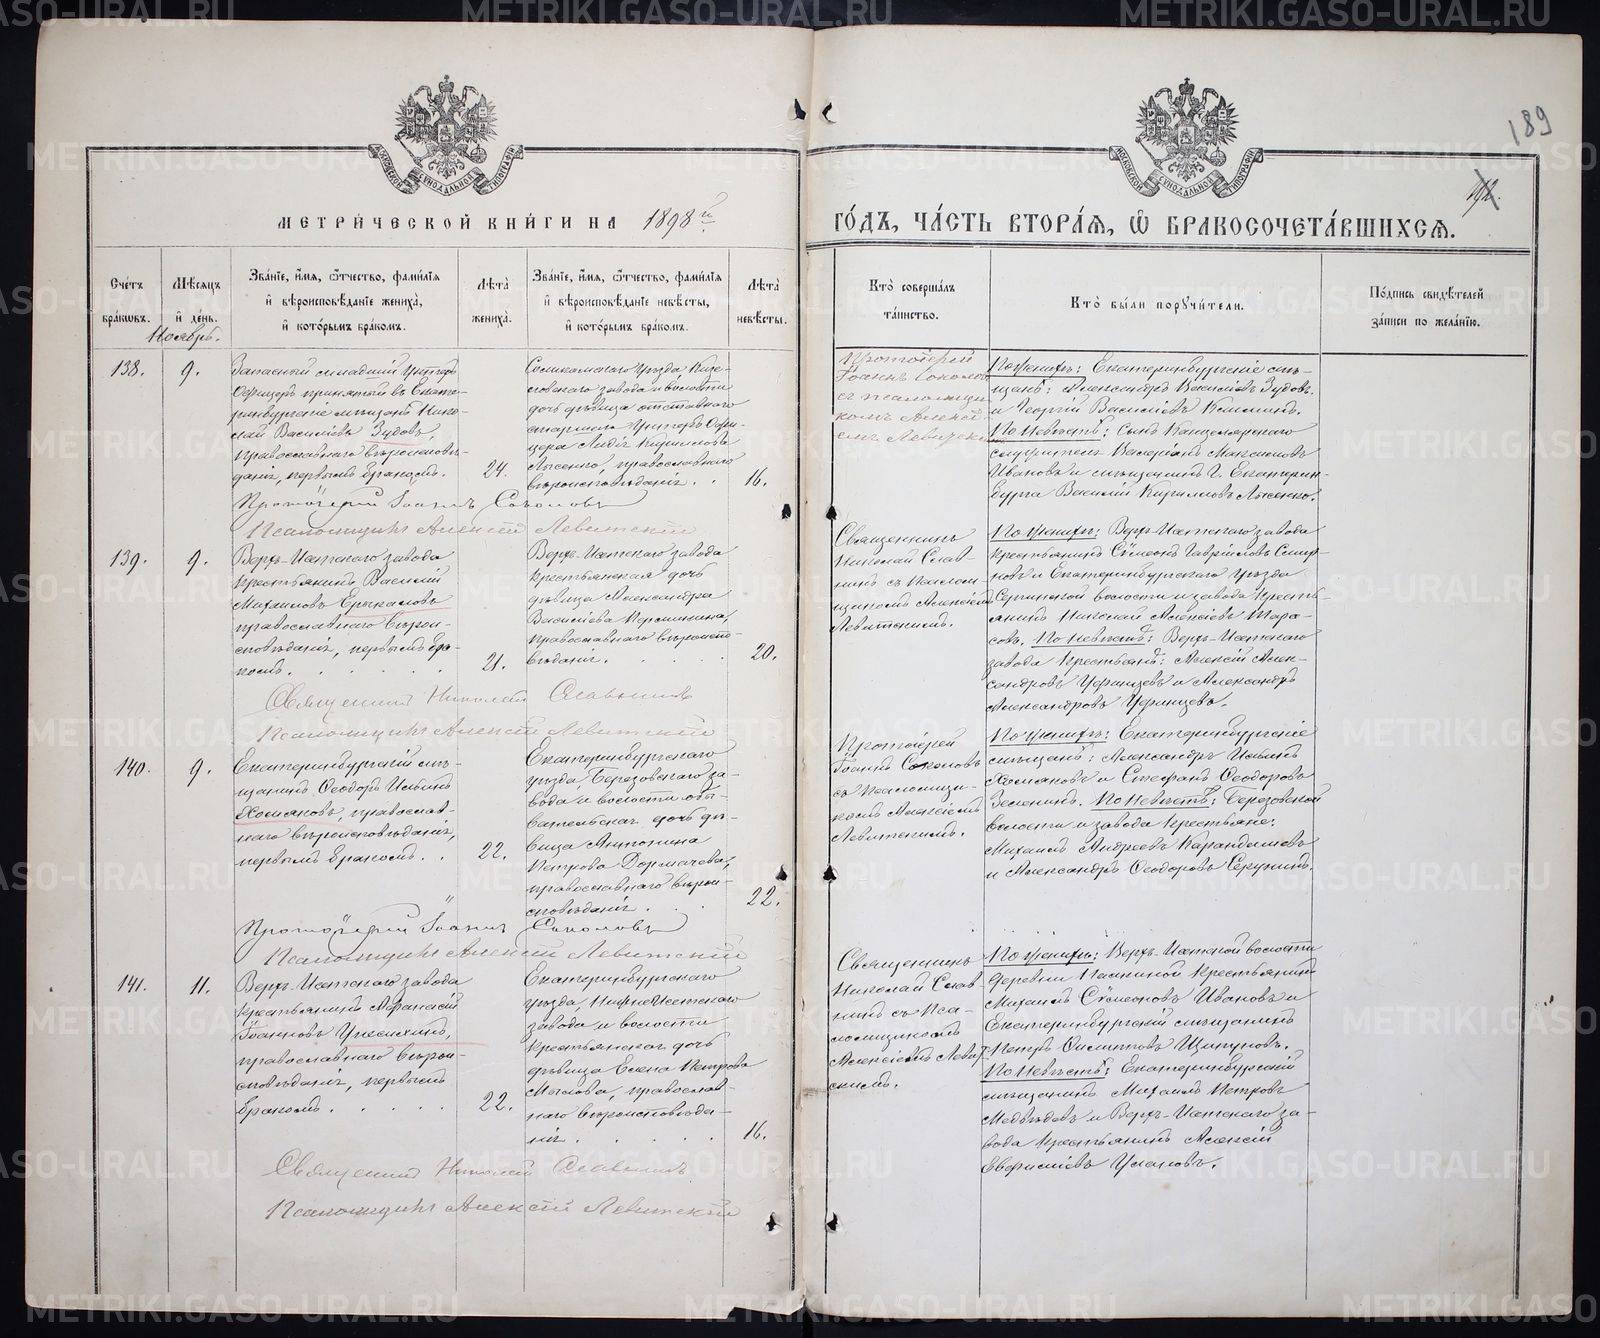 189
МЕТРИ́ЧЕСКОЙ КНИ́ГИ НА 1898й ГО́ДЪ, ЧА́СТЬ ВТОРА́Я, Ѡ҆ БРАКОСОЧЕТА́ВШИХСЯ.
Сче́тъ бра́ковъ.
Мѣ́сяцъ и҆ де́нь.
Зва́нїе, и҆́мя, ѻ҆́тчество, фами́лїя и҆ вѣроисповѣ́данїе жениха̀, и҆ кото́рымъ бра́комъ.
Лѣ́та жениха̀.
Зва́нїе, и҆́мя, ѻ҆́тчество, фами́лїя и҆ вѣроисповѣ́данїе невѣ́сты, и҆ кото́рымъ бра́комъ.
Лѣ́та невѣ́сты.
Кто̀ соверша́лъ та́инство.
Кто̀ бы́ли поручи́тели.
По́дпись свидѣ́телей за́писи по жела́нїю.
Ноябрь.
138.
9.
Запасный младший Унтеръ
Офицеръ принятый въ Екате-
ринбургскіе мѣщане Нико-
лай Василіевъ Зудовъ,
православнаго вѣроисповѣ-
данія, первымъ бракомъ.
24.
Соликамскаго уѣзда Кизе-
ловскаго завода и волости
дочь дѣвица отставного
Унтеръ Офи-
цера Лидія Кирилова
Лысенко, православнаго
вѣроисповѣданія.
16.
Протоіерей
Іоаннъ Соколовъ
съ псаломщи-
комъ Алексі-
емъ Левитским
По женихѣ: Екатеринбургскіе мѣ-
щане: Александръ Василіевъ Зудовъ
и Георгій Василіевъ Климинъ.
По невѣстѣ: Сынъ Канцелярскаго
служителя Валеріанъ Максимовъ
Ивановъ и мѣщанинъ г. Екатерин-
бурга Василій Кириловъ Лысенко.
Протоіерей Іоаннъ Соколовъ
Псаломщикъ Алексій Левитскій
139.
9.
Верхъ-Исетскаго завода
крестьянинъ Василій
Михаиловъ Ерыкаловъ
православнаго вѣрои-
сповѣданія, первымъ бра-
комъ.
21.
Верхъ-Исетскаго завода
крестьянская дочь
дѣвица Александра
Василіева Перминина,
православнаго вѣроиспо-
вѣданія.
20.
Священникъ
Николай Слав-
нинъ съ псалом-
щикомъ Алексіемъ
Левитскимъ.
По женихѣ: Верхъ-Исетскаго завода
крестьянинъ Сѵмеонъ Гавріиловъ Смир-
новъ и Екатеринбургскаго уѣзда
Сергинской волости и завода кресть-
янинъ Николай Алексіевъ Тара-
совъ. По невѣстѣ: Верхъ-Исетскаго
завода крестьяне: Алексій Алек-
сандровъ Уфимцевъ и Александръ
Александровъ Уфимцевъ.
Священникъ Николай Славнинъ
Псаломщикъ Алексій Левитскій
140.
9.
Екатеринбургскій мѣ-
щанинъ Ѳеодоръ Ильинъ
Хомяковъ, православ-
наго вѣроисповѣданія,
первымъ бракомъ.
22.
Екатеринбургскаго
уѣзда, Березовскаго за-
вода и волости обы-
вательская дочь дѣ-
вица Антонина
Петрова Дормачева,
православнаго вѣрои-
сповѣданія.
22.
Протоіерей
Іоаннъ Соколовъ
съ псаломщи-
комъ Алексіемъ
Левитскимъ.
По женихѣ: Екатеринбургскіе
мѣщане: Александръ Ильинъ
Хомяковъ и Стефанъ Ѳеодоровъ
Зеленинъ. По невѣстѣ: Березовской
волости и завода крестьяне:
Михаилъ Андреевъ Карандашовъ
и Александръ Ѳеодоровъ Серухинъ.
Протоіерей Іоаннъ Соколовъ
Псаломщикъ Алексій Левитскій
141.
11.
Верхъ-Исетскаго завода
крестьянинъ Аѳанасій
Іоанновъ
православнаго вѣрои-
сповѣданія, первымъ
бракомъ.
22.
Екатеринбургскаго
уѣзда, Нижне-Исетскаго
завода и волости
крестьянская дочь
дѣвица Елена Петрова
православ-
наго вѣроисповѣда-
нія.
16.
Священникъ
Николай Слав
нинъ съ пса-
ломщикомъ
Алексіемъ Левит-
скимъ.
По женихѣ: Верхъ-Исетской волости
деревни Палкиной крестьянинъ
Михаилъ Сѵмеоновъ Ивановъ и
Екатеринбургскій мѣщанинъ
Петръ Филипповъ Щипуновъ.
По невѣстѣ: Екатеринбургскій
мѣщанинъ Михаилъ Петровъ
Медвѣдевъ и Верхъ-Исетскаго за-
вода крестьянинъ Алексій
Евфиміевъ Ушаковъ.
Священникъ Николай Славнинъ
Псаломщикъ Алексій Левитскій
METRIKI.GASO-URAL.RU